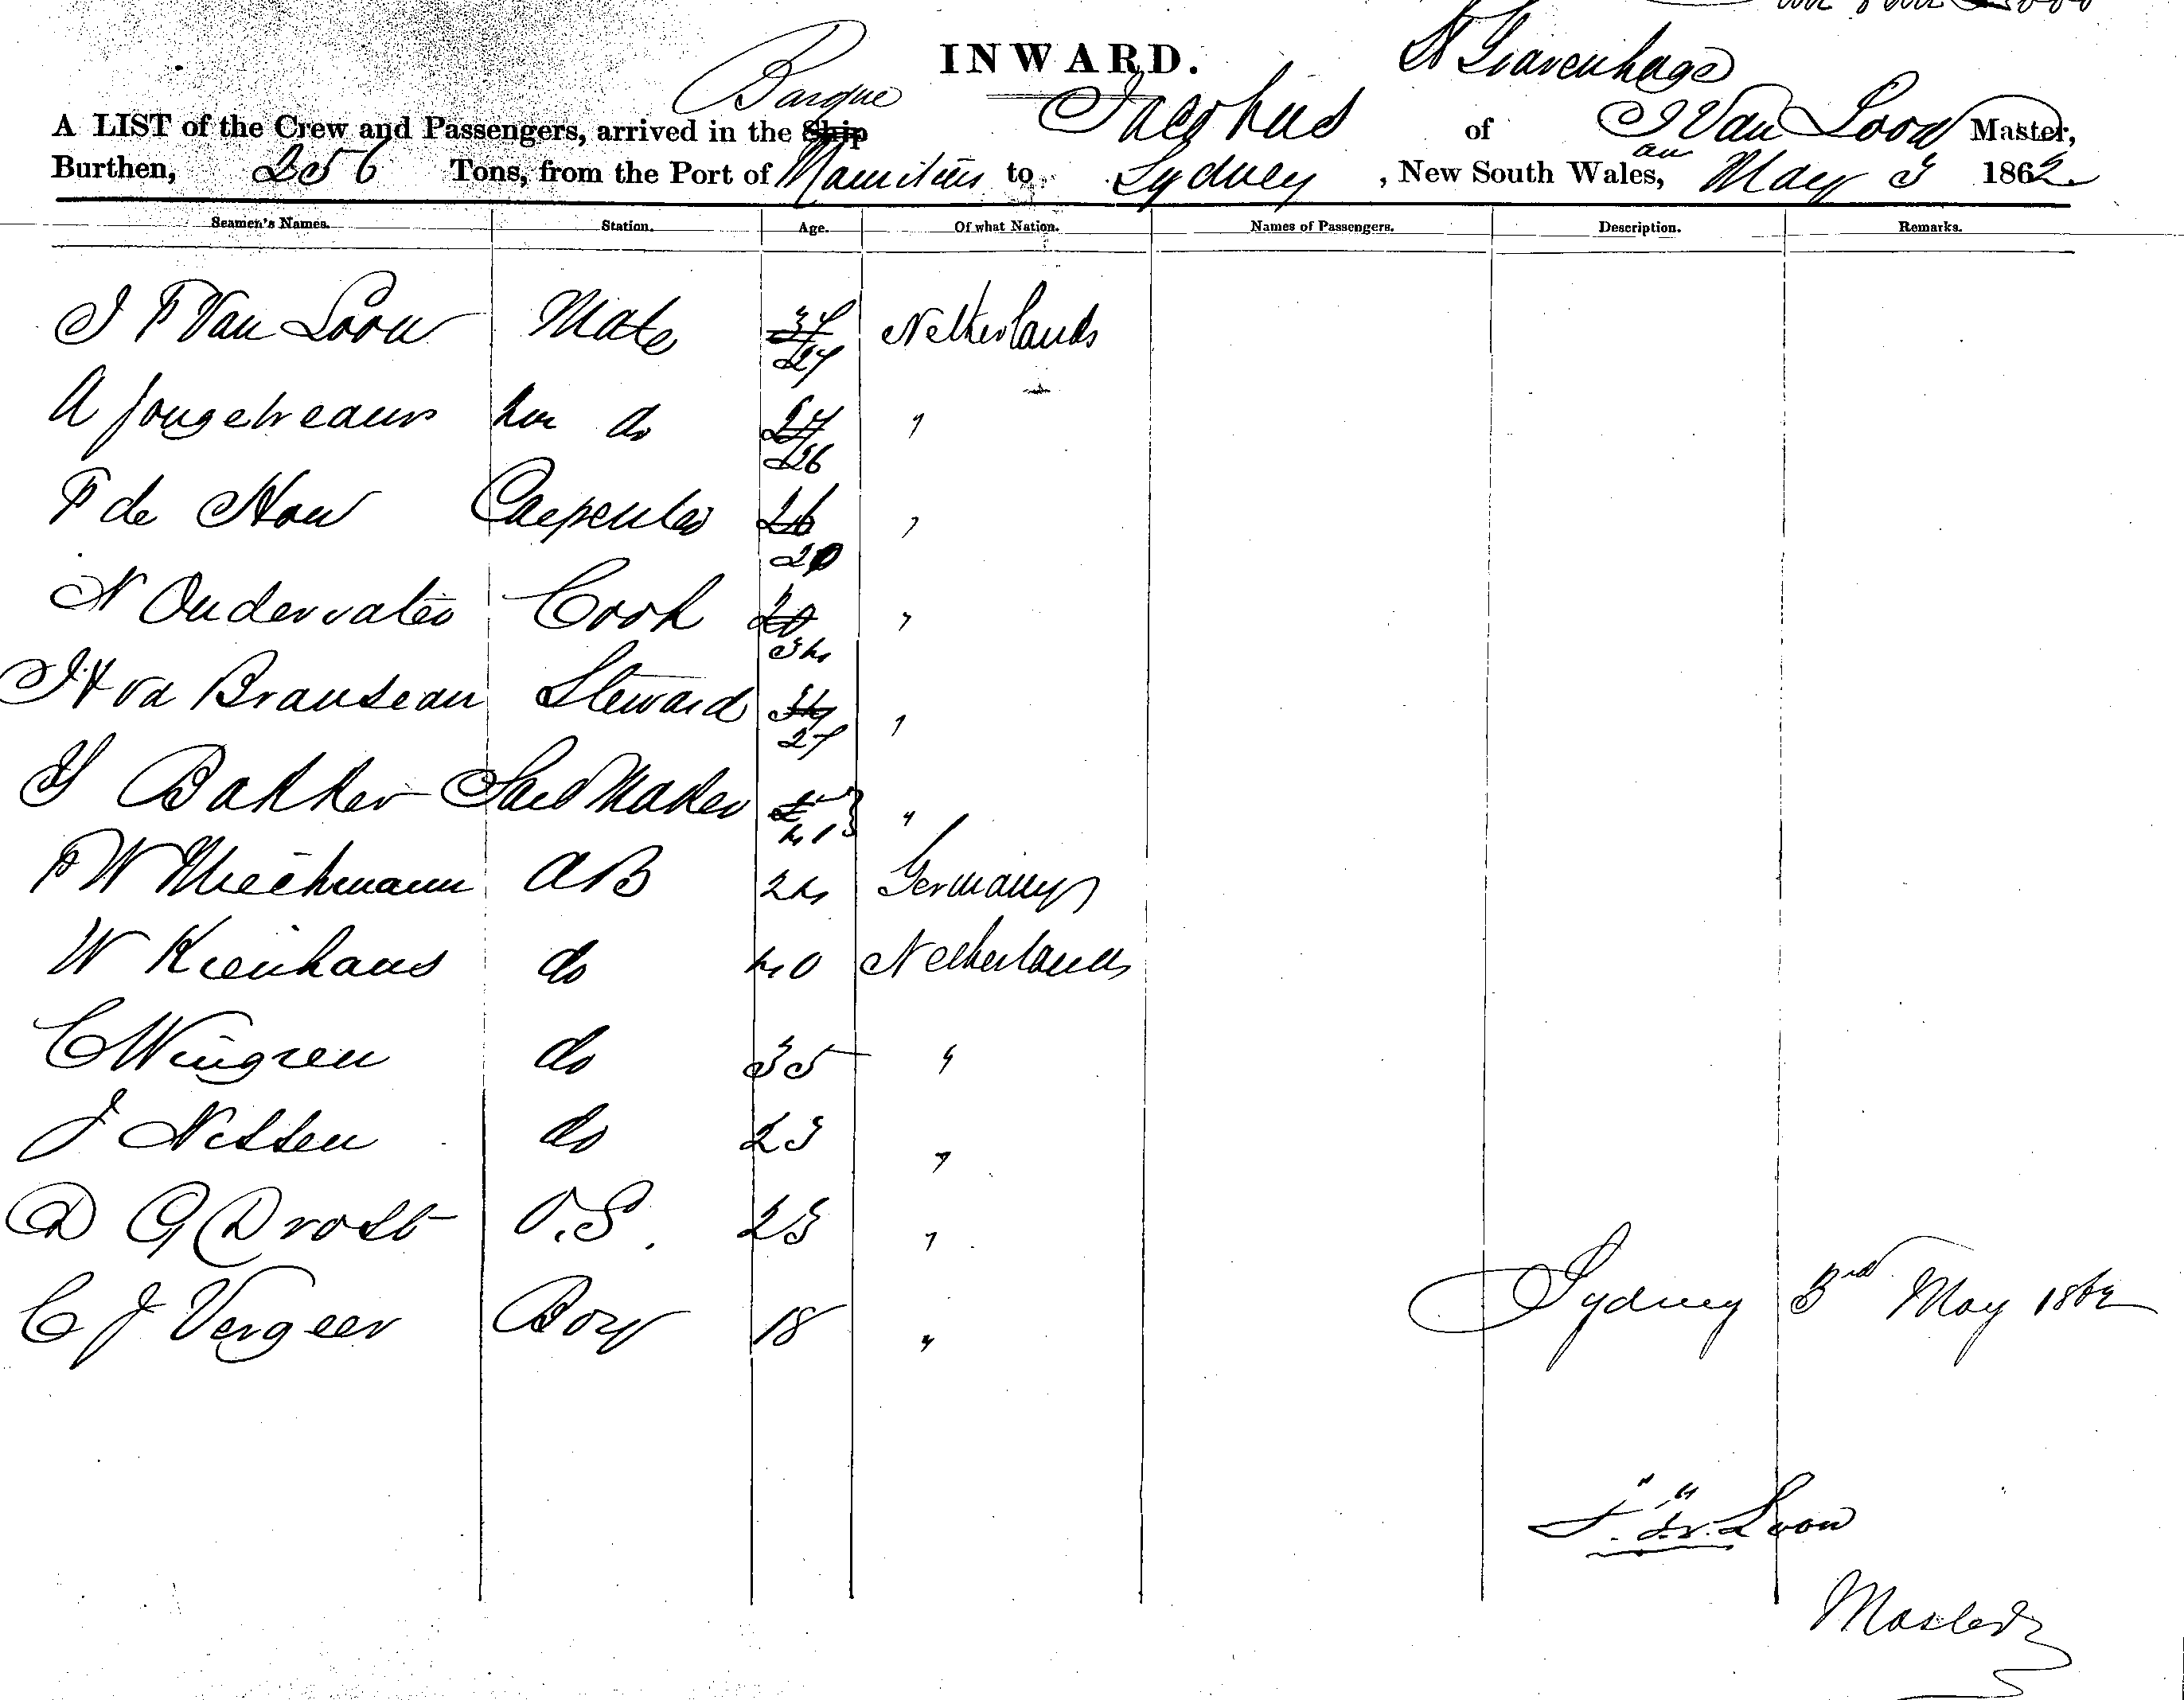 INWARD.
Barque S Gravenhage
A LIST of the Crew and Passengers, arrived in the Ship Jacobus of J Van Loon Master,
Burthen, 256 Tons, from the Port of Mauritius to Sydney, New South Wales, May 3 1862.
Seamen's Names. Station. Age. Of what Nation. Names of Passengers. Description. Remarks.
J F Van Loon Mate 34 27 Netherlands
A Jongebreaur do 27 26 "
F de Haw Carpenter 26 20 "
N Oudervater Cook 20 34 "
J H va Branseau Steward 34 27 "
Bakker Sail Maker 41 "
F W Miechmann AB 24 Germany
W Kienhaus do 40 Netherlands
C Wingren do 35 "
J Nissen do 23 "
D G Drost O.S. 23 "
C J Vergeer Boy 18 "
Sydney 3rd May 1862
Loon
Master